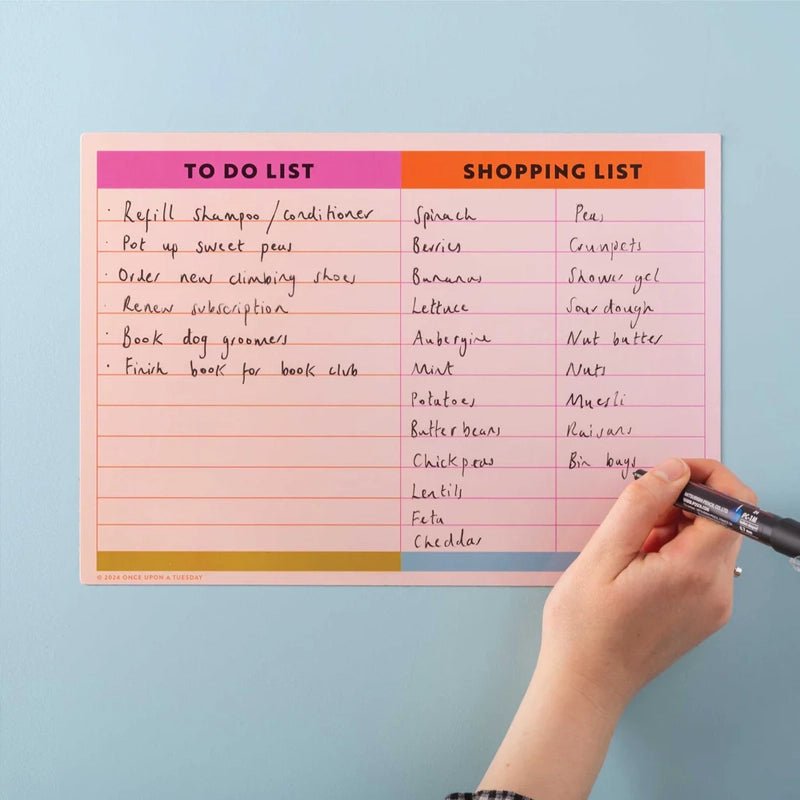 TO DO LIST
· Refill shampoo/conditioner
· Pot up sweet peas
· Order new climbing shoes
· Renew subscription
· Book dog groomers
· Finish book for book club
SHOPPING LIST
Spinach
Berries
Bananas
Lettuce
Aubergine
Mint
Potatoes
Butter beans
Chickpeas
Lentils
Feta
Cheddar
Peas
Crumpets
Shower gel
Sourdough
Nut butter
Nuts
Muesli
Raisans
Bin bags
© 2024 ONCE UPON A TUESDAY